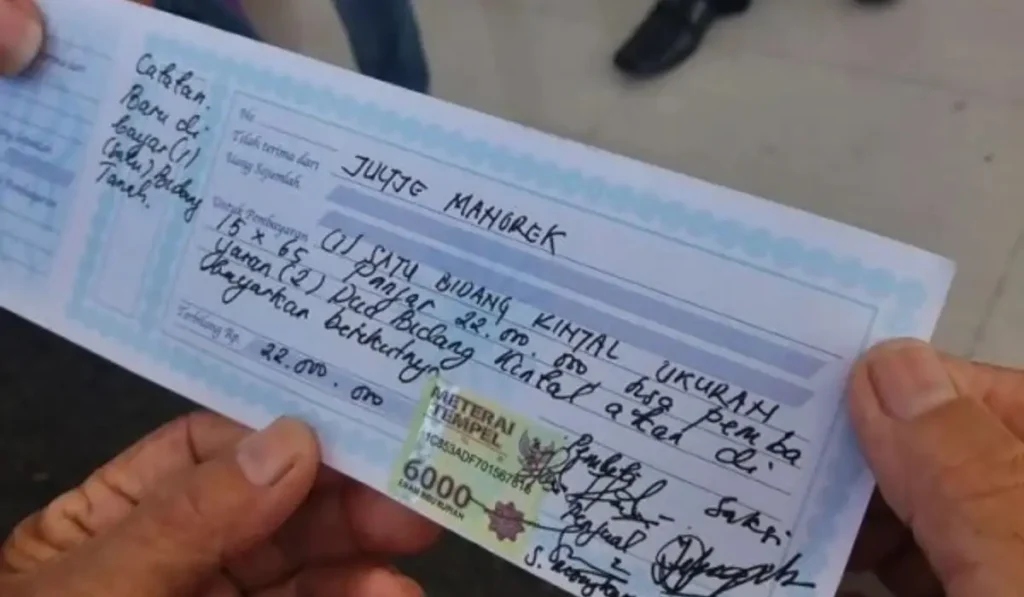 Catatan.
Baru di
bayar (1)
(satu) Bidang
Tanah.
No
Telah terima dari JULTJE MANGREK
Uang Sejumlah
Untuk Pembayaran (1) SATU BIDANG KINTAL UKURAN
15 x 65 Panjar 22.000.000 sisa pemba
yaran (2) Dua Bidang Kintal akan di
bayarkan berikutnya
Terbilang Rp. 22.000.000
METERAI
TEMPEL
6000
ENAM RIBU RUPIAH
Pembeli Saksi.
Penjual